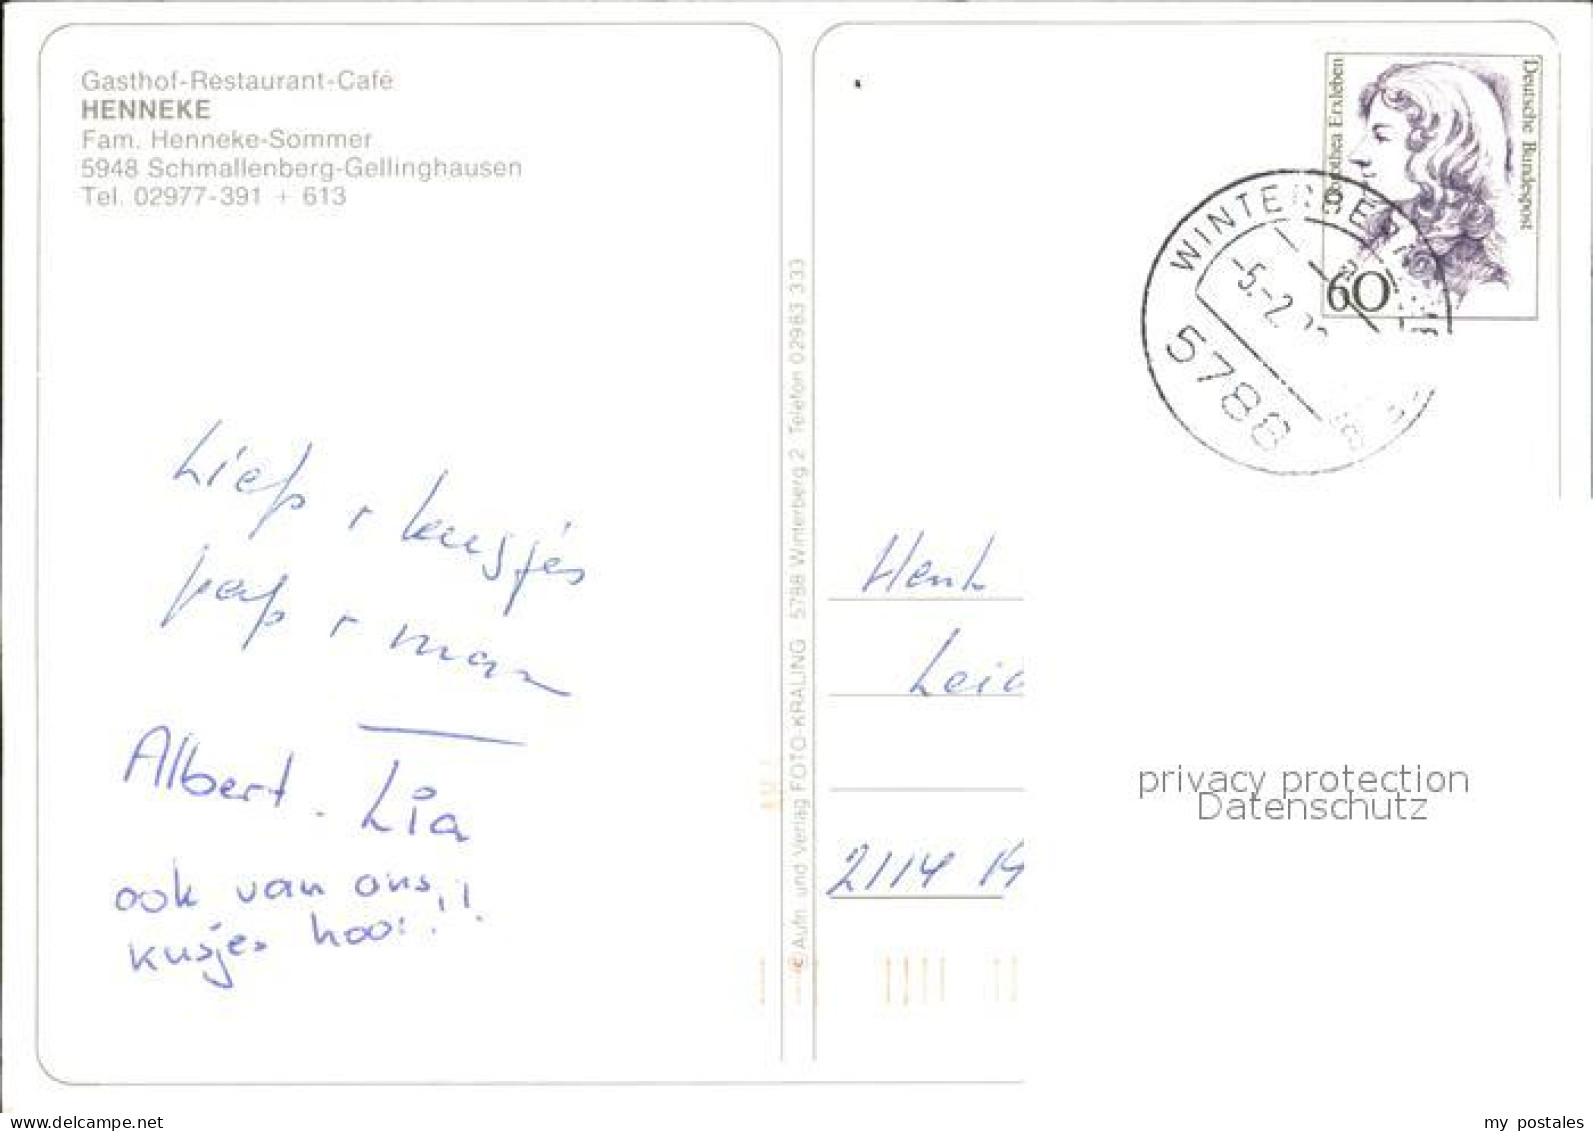 Gasthof-Restaurant-Café
HENNEKE
Fam. Henneke-Sommer
5948 Schmallenberg-Gellinghausen
Tel. 02977-391 + 613
Liefs + kusjes
pap + mam
Albert. Lia
ook van ons!!
kusjes hoor!!
© Aufn. und Verlag FOTO-KRALING 5788 Winterberg 2 Telefon 02983 333
Dorothea Erxleben
Deutsche Bundespost
60
WINTERBERG
-5.-2.
5788
Henk
Leid
2114
privacy protection
Datenschutz
delcampe.net
my_postales